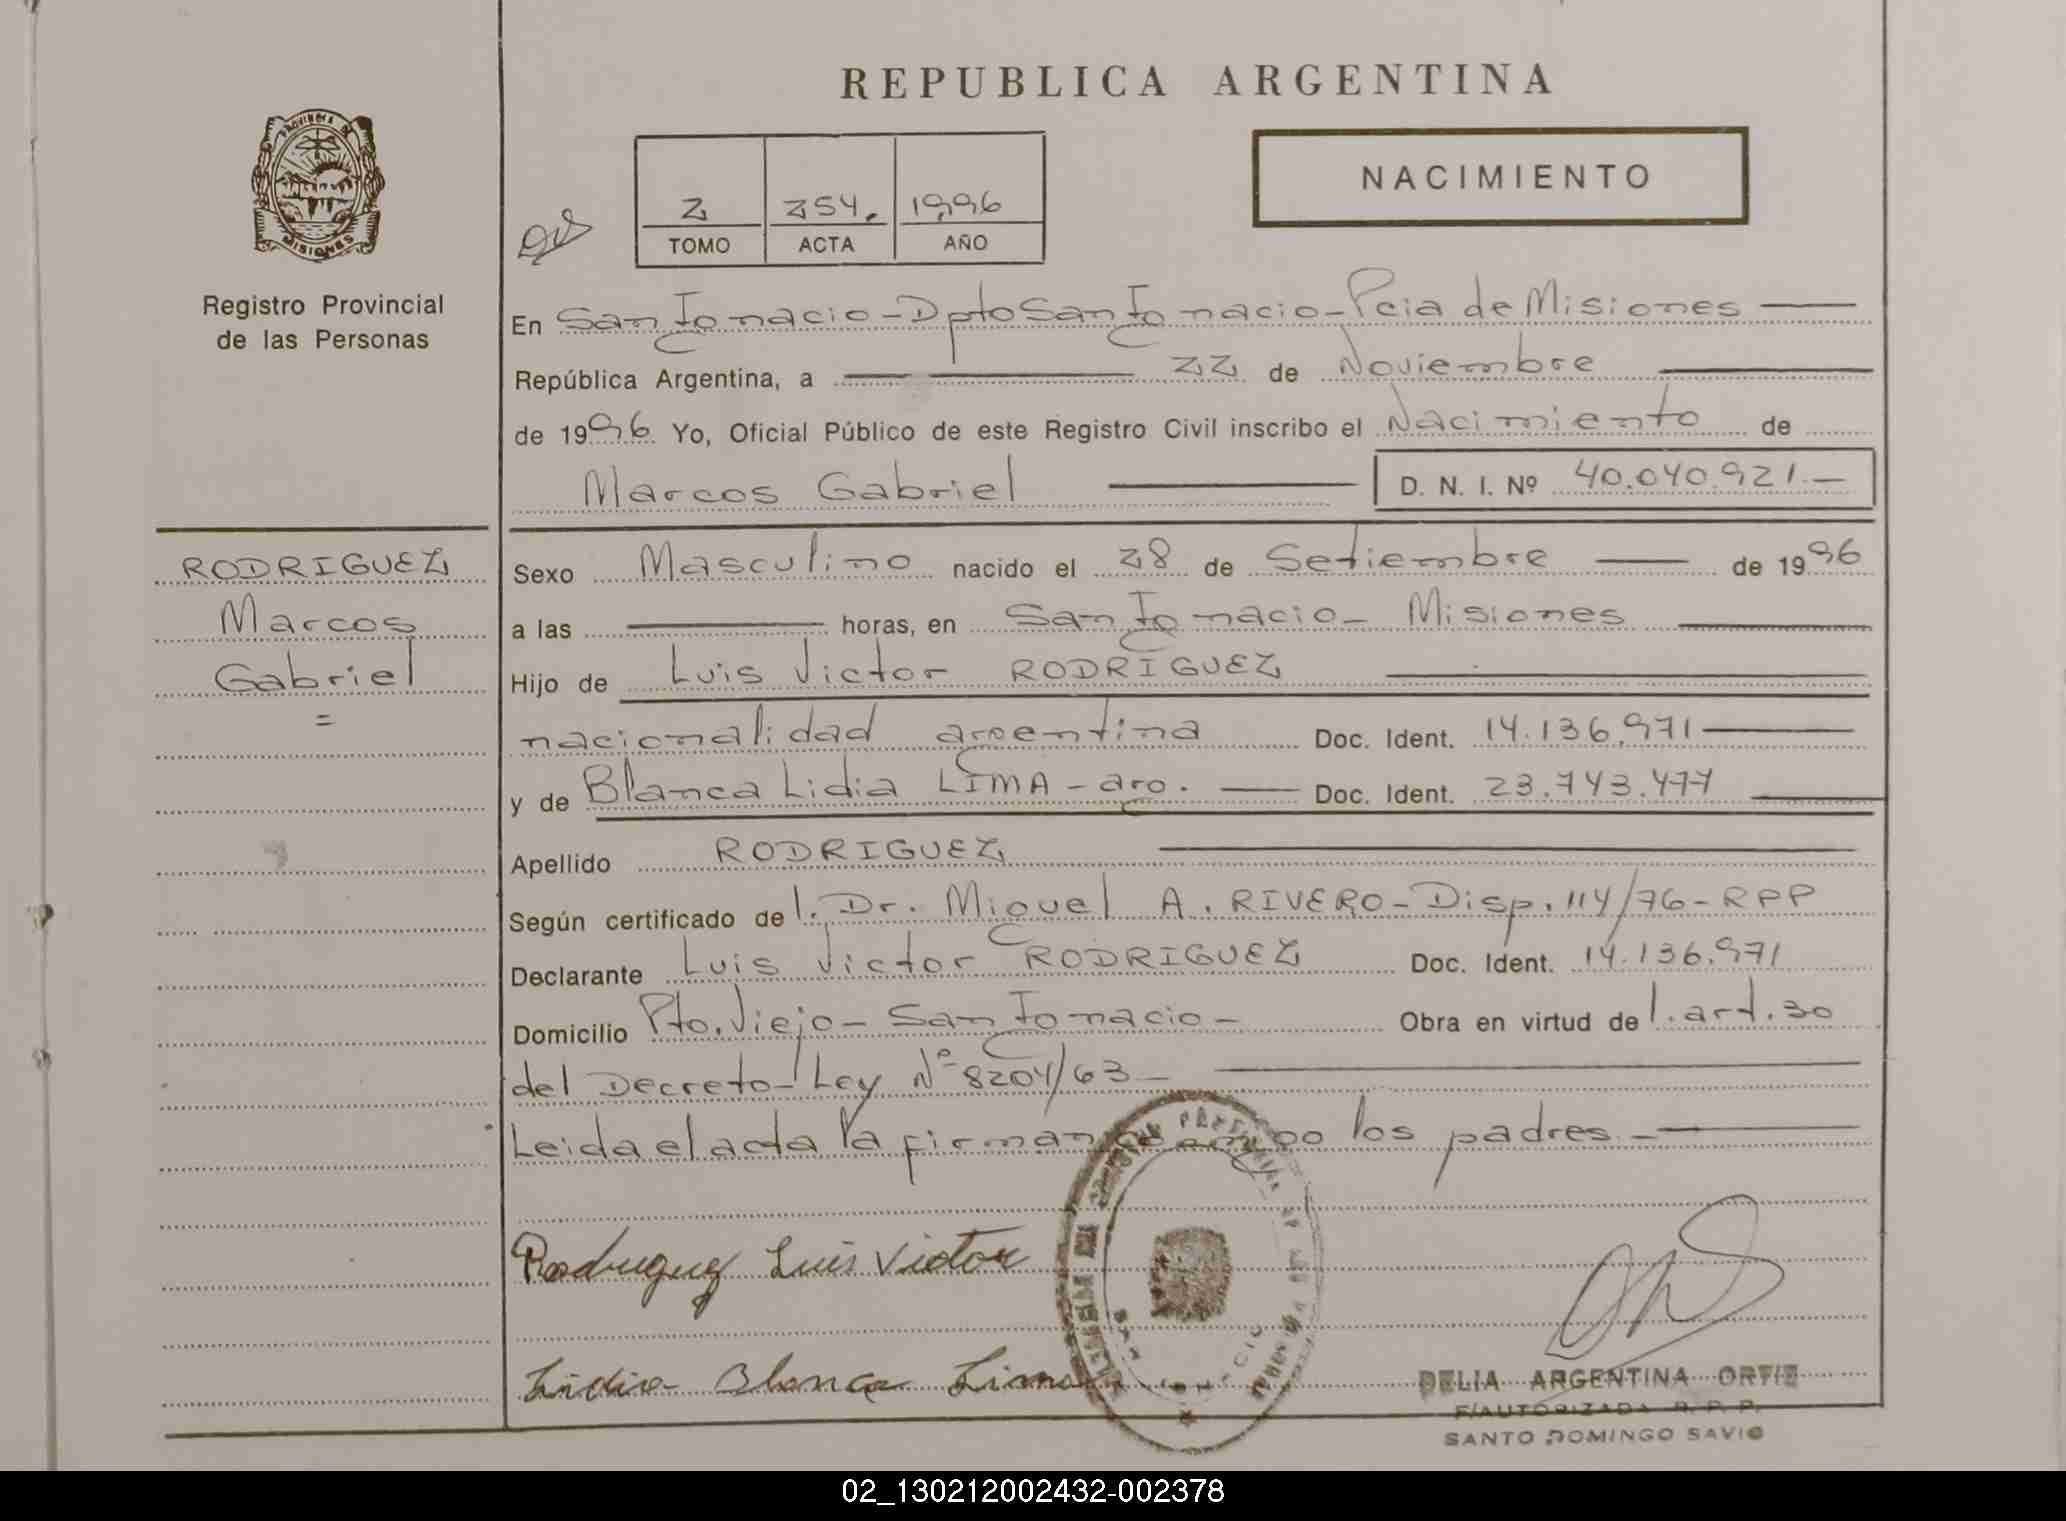 REPUBLICA ARGENTINA
NACIMIENTO
2 254. 1996
TOMO ACTA AÑO
PROVINCIA DE
MISIONES
Registro Provincial
de las Personas
En San Ignacio - Dpto San Ignacio - Pcia de Misiones
República Argentina, a 22 de Noviembre
de 1996 Yo, Oficial Público de este Registro Civil inscribo el Nacimiento de
Marcos Gabriel D. N. I. Nº 40.040.921.-
RODRIGUEZ
Marcos
Gabriel
=
Sexo Masculino nacido el 28 de Setiembre de 1996
a las horas, en San Ignacio - Misiones
Hijo de Luis Victor RODRIGUEZ
nacionalidad argentina Doc. Ident. 14.136.971
y de Blanca Lidia LIMA - arg. Doc. Ident. 23.743.477
Apellido RODRIGUEZ
Según certificado de l. Dr. Miguel A. RIVERO - Disp. 114/76 - RPP
Declarante Luis Victor RODRIGUEZ Doc. Ident. 14.136.971
Domicilio Pto. Viejo - San Ignacio - Obra en virtud de l. art. 30
del Decreto-Ley Nº 8204/63 -
Leida el acta la firman conmigo los padres.-
Rodriguez Luis Victor
Lidia Blanca Lima
DELIA ARGENTINA ORTIZ
F/AUTORIZADA R. P. P.
SANTO DOMINGO SAVIO
02_130212002432-002378